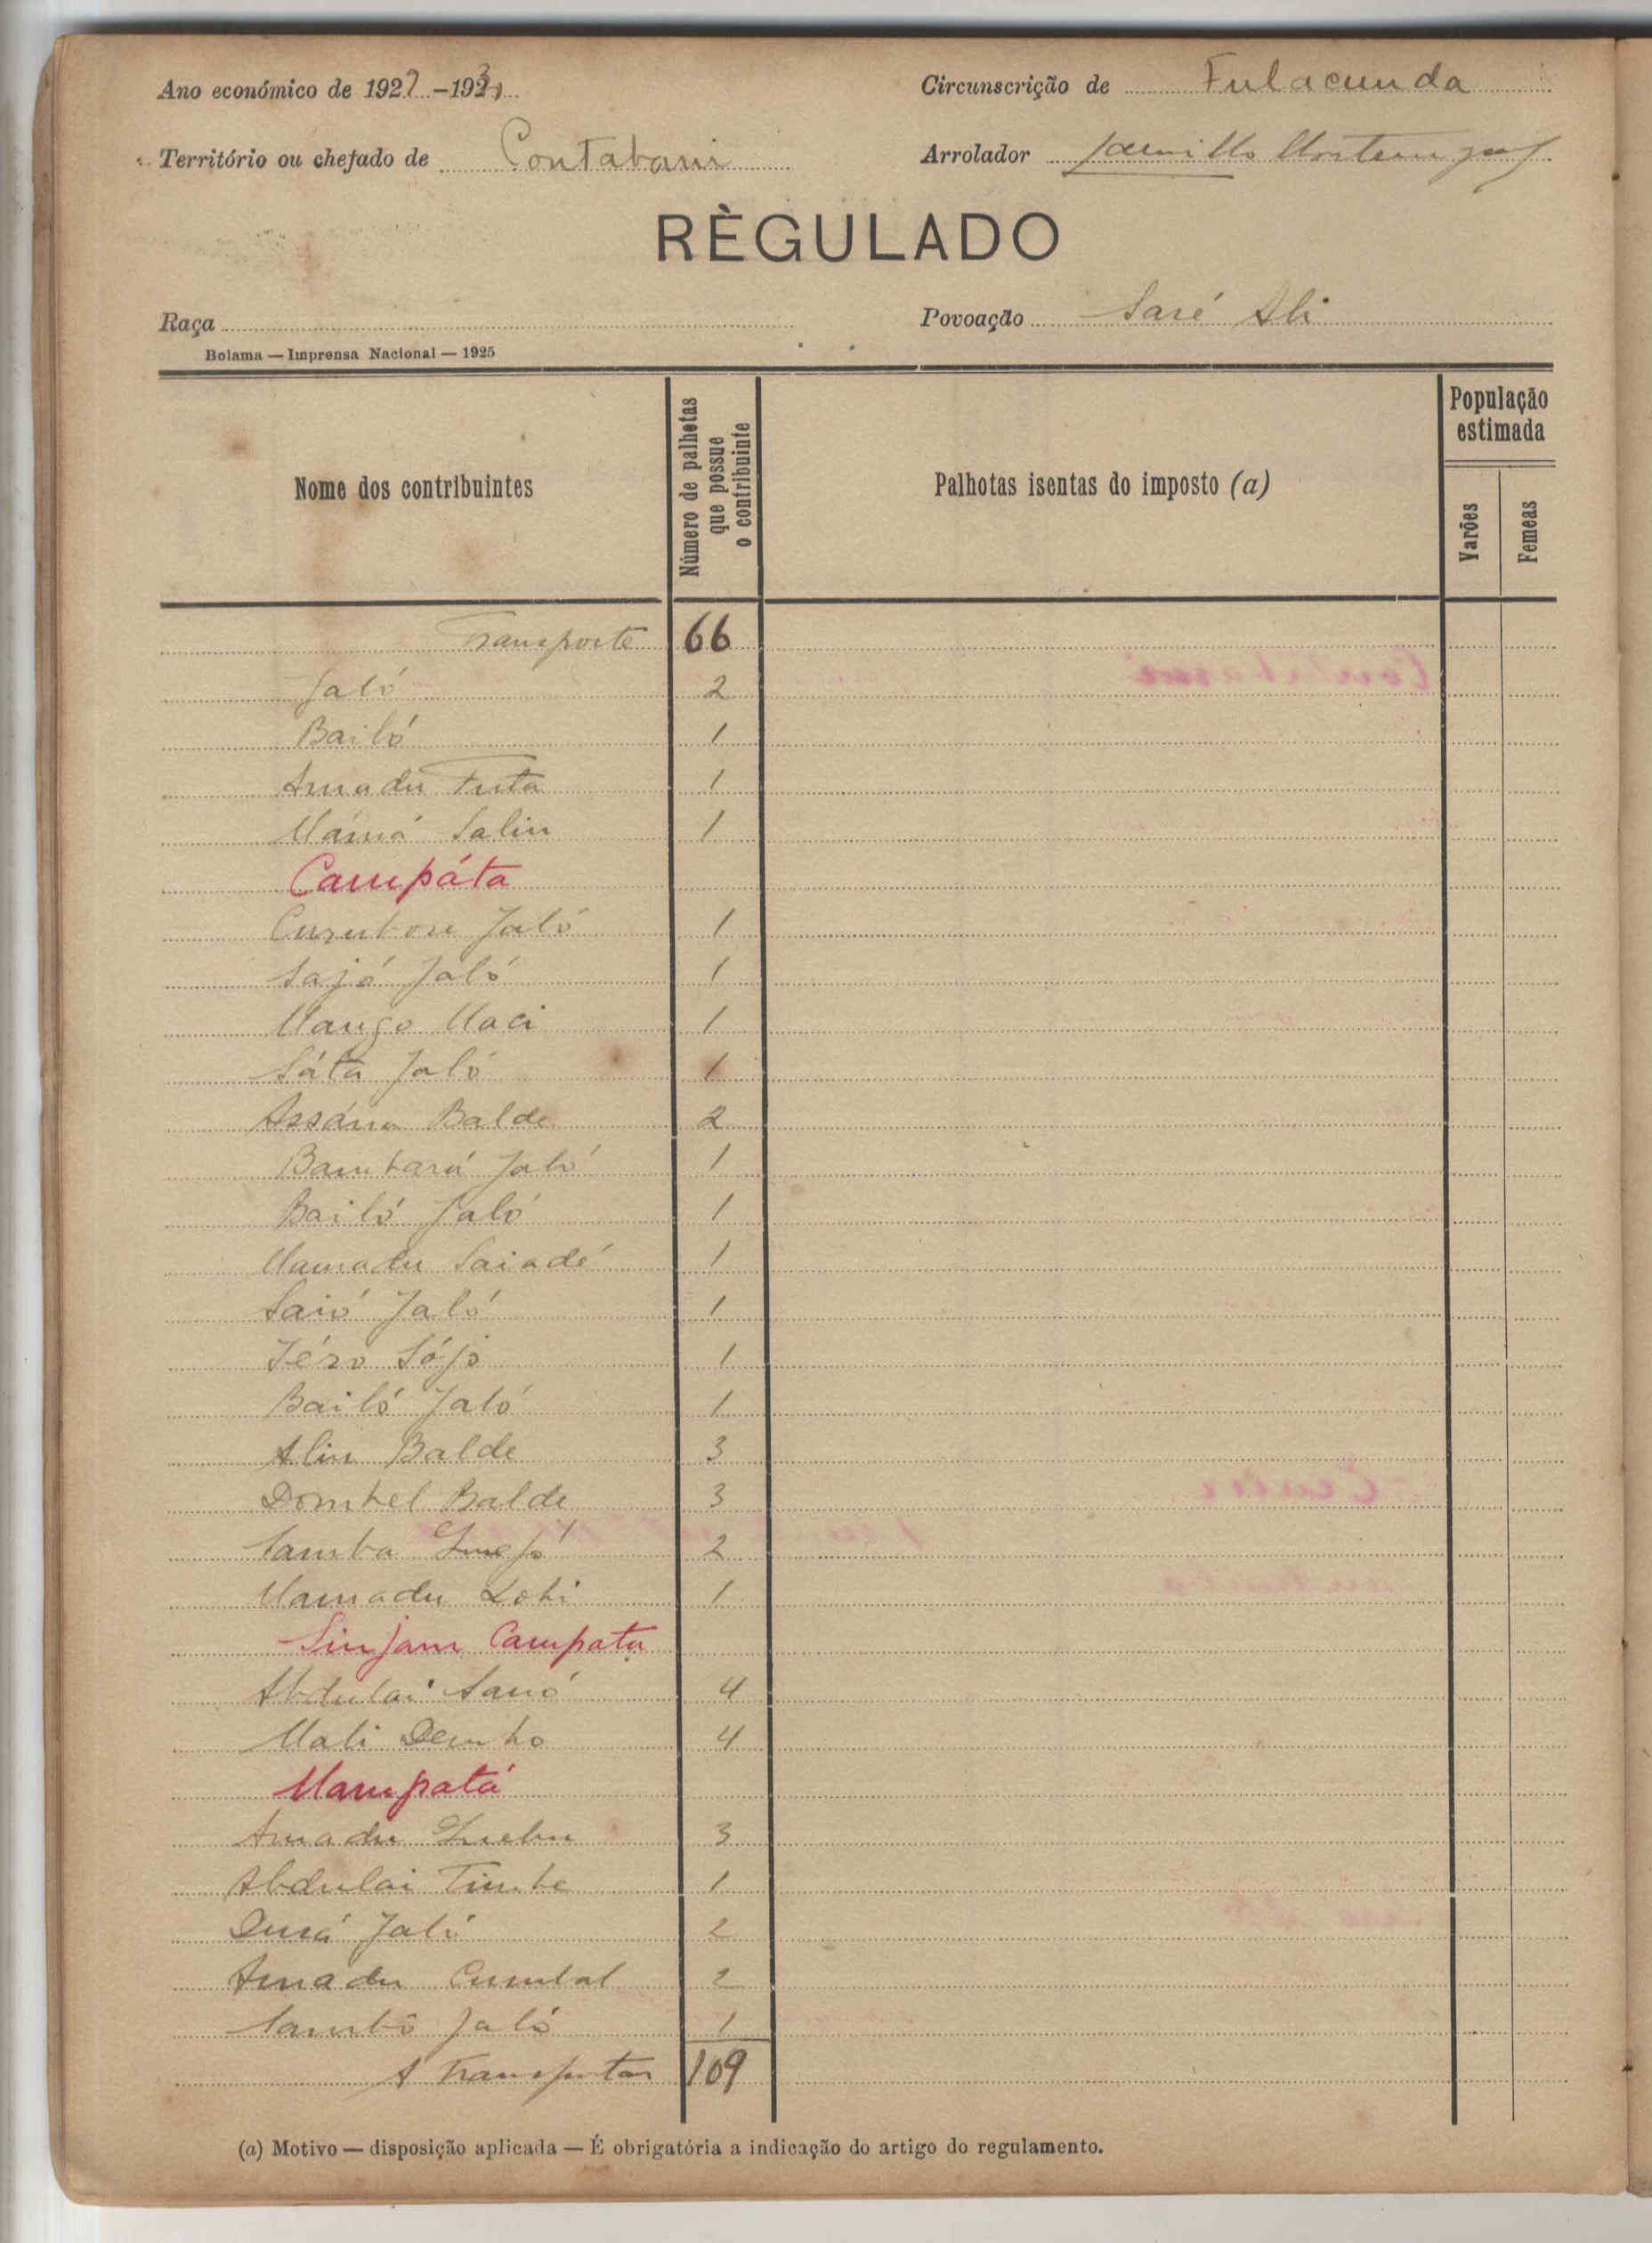 Ano económico de 1927-193
Circunscrição de Fulacunda
Território ou chefado de Contabani
Arrolador
RÈGULADO
Raça
Povoação Saré Ali
Bolama — Imprensa Nacional — 1925
Nome dos contribuintes
Número de palhotas que possue o contribuinte
Palhotas isentas do imposto (a)
População estimada
Varões
Femeas
Transporte 66
Jaló 2
Bailó 1
Amadu Futa 1
Mámá Saliu 1
Campáta
Jaló 1
Sajó Jaló 1
Mango Maci 1
Sáta Jaló 1
Assána Balde 2
Bambará Jaló 1
Bailó Jaló 1
Mamadu Saiadé 1
Saió Jaló 1
Téro Sójo 1
Bailó Jaló 1
Aliu Balde 3
Dombel Balde 3
Samba 2
Mamadu 1
Sinjam Campata
Abdulai Sanó 4
Mali Dembo 4
Mampatá
Amadu 3
Abdulai Timbe 1
Jaló 2
Amadu Cumbal 2
Sambô Jaló 1
A Transportar 109
(a) Motivo — disposição aplicada — É obrigatória a indicação do artigo do regulamento.